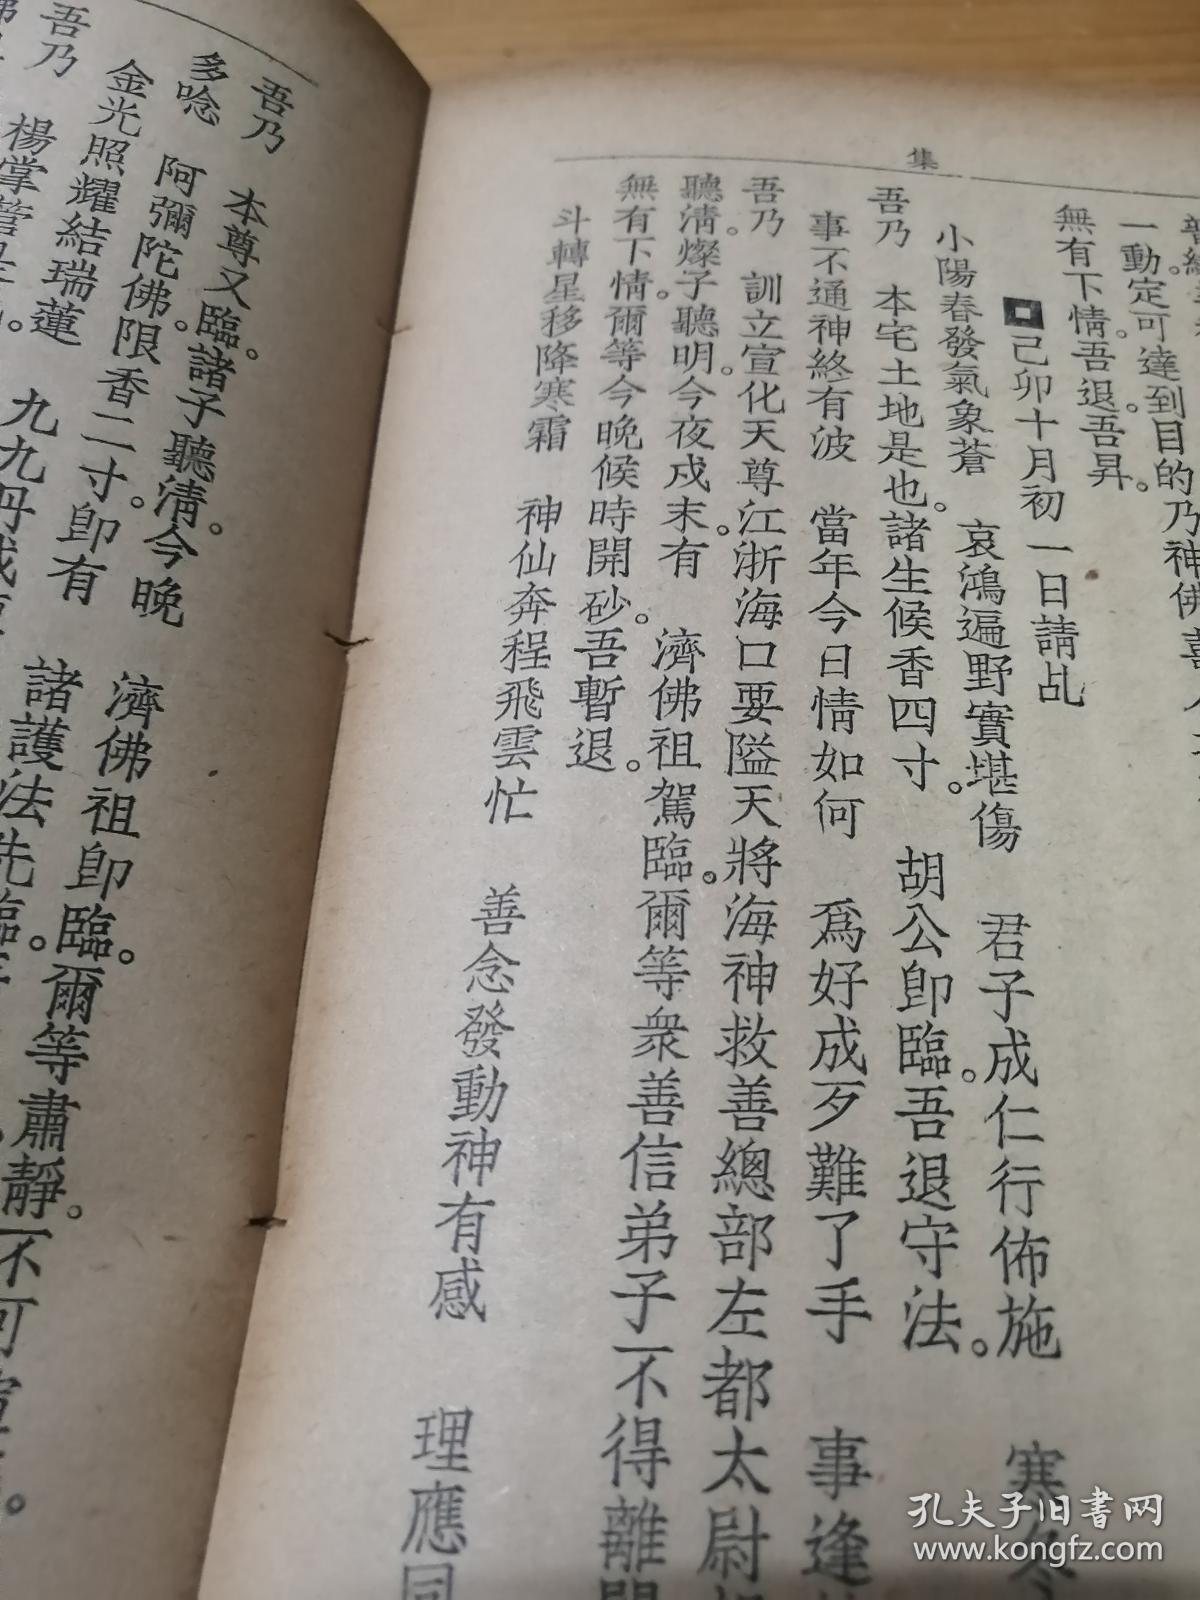 集
一動。定可達到目的。乃神佛喜
無有下情。吾退。吾昇。
己卯十月初一日請乩
小陽春發氣象蒼 哀鴻遍野實堪傷 君子成仁行佈施 寒冬
吾乃 本宅土地是也。諸生候香四寸。 胡公卽臨。吾退守法。
事不通神終有波 當年今日情如何 爲好成歹難了手 事逢
吾乃 訓立宣化天尊江浙海口要隘天將海神救善總部左都太尉
聽淸。燦子聽明。今夜戍末。有 濟佛祖駕臨。爾等衆善信弟子一不得離開
無有下情。爾等今晚候時開砂。吾暫退。
斗轉星移降寒霜 神仙奔程飛雲忙 善念發動神有感 理應同
吾乃 本尊又臨。諸子聽淸。今晚 濟佛祖卽臨。爾等肅靜。一不可
多唸 阿彌陀佛。限香二寸。卽有 諸護法先臨。
金光照耀結瑞蓮 九九丹成
吾乃 楊掌管
孔夫子旧书网
www.kongfz.com